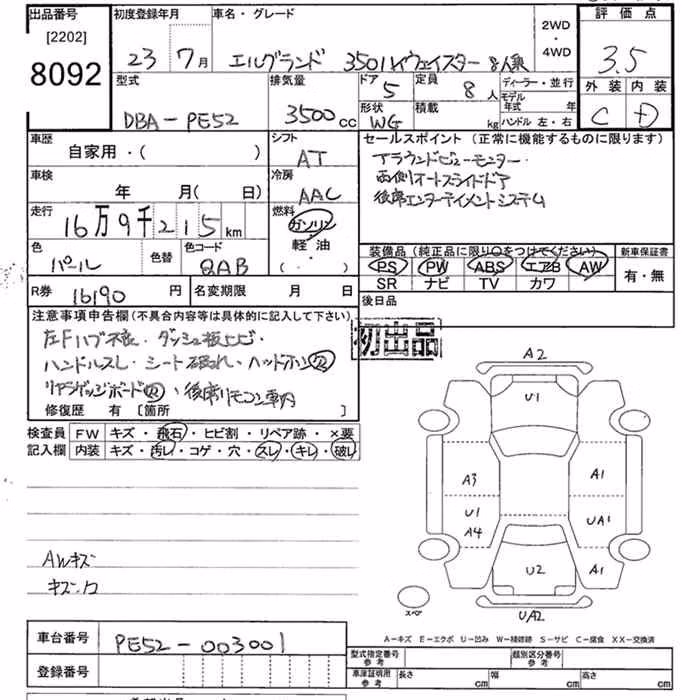 出品番号
[2202]
8092
初度登録年月
23 7月
車名・グレード
エルグランド 350ハイウェイスター 8人乗
2WD
・
4WD
評価点
3.5
外装 内装
C D
型式
DBA-PE52
排気量
3500cc
ドア
5
定員
8人
ディーラー・並行
モデル年式 年
形状
WG
積載
kg
ハンドル 左・右
車歴
自家用・( )
シフト
AT
車検
年 月( 日)
冷房
AAC
走行
16万9千215km
燃料
ガソリン
・
軽・油
( ・ )
色
パール
色替
色コード
QAB
R券
16190円
名変期限 月 日
セールスポイント(正常に機能するものに限ります)
アラウンドビューモニター・
両側オートスライドドア
後席エンターテイメントシステム
装備品(純正品に限り○をつけてください)
PS PW ABS エアB AW
SR ナビ TV カワ
新車保証書
有・無
後日品
注意事項申告欄(不具合内容等は具体的に記入して下さい)
左Fハブ不良・ダッシュ板ヒビ・
ハンドルスレ・シート破れ・ヘッドホン欠
リアラゲッジボード欠・後席リモコン車内
修復歴 有 [箇所 ]
初出品
検査員 FW キズ・飛石・ヒビ割・リペア跡・×要
記入欄 内装 キズ・汚レ・コゲ・穴・スレ・キレ・破レ
AWキズ
A2
U1
A3
A1
U1
A4
UA1
U2
A1
UA2
スペア
A-キズ E-エクボ U-凹み W-補修跡 S-サビ C-腐食 XX-交換済
車台番号
PE52-003001
登録番号
型式指定番号
参考
類別区分番号
参考
車庫証明用
参考
長さ cm
幅 cm
高さ cm